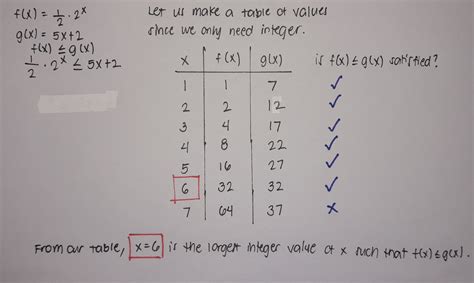 f(x) = 1/2 · 2^x
g(x) = 5x+2
f(x) ≤ g(x)
1/2 · 2^x ≤ 5x+2
Let us make a table of values
since we only need integer.
x f(x) g(x) is f(x) ≤ g(x) satisfied?
1 1 7 ✓
2 2 12 ✓
3 4 17 ✓
4 8 22 ✓
5 16 27 ✓
6 32 32 ✓
7 64 37 x
From our table, x=6 is the largest integer value of x such that f(x) ≤ g(x).